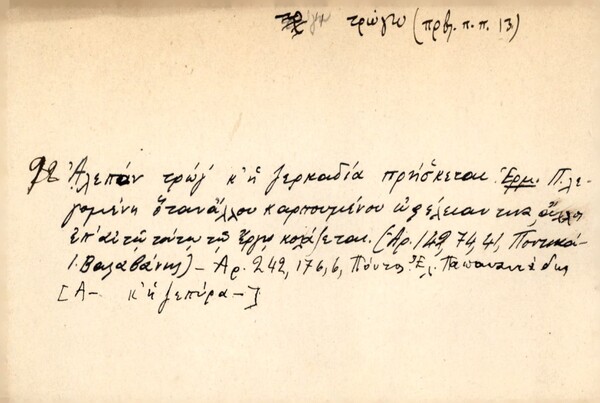 τρώγω (πρβλ. π.π. 13)
92 Ἀλεπὸν τρώγ̓ κ̓ ἡ ζερκαδία πρήσκεται. Ἑρμ. Π. λε-
γομένη ὅταν ἄλλου καρπουμένου ὠφέλειαν τινα ἄλλος
ἐπ' αὐτῷ τούτῳ τῷ ἔργῳ κολάζεται. (Ἀρ. 149, 74, 41, Ποντικά-
Ι. Βαλαβάνης) - Ἀρ. 242, 176, 6, Πόντος. Ἐλ. Παπαναν-
[Α- κ̓ ἡ ζεπύρα-]